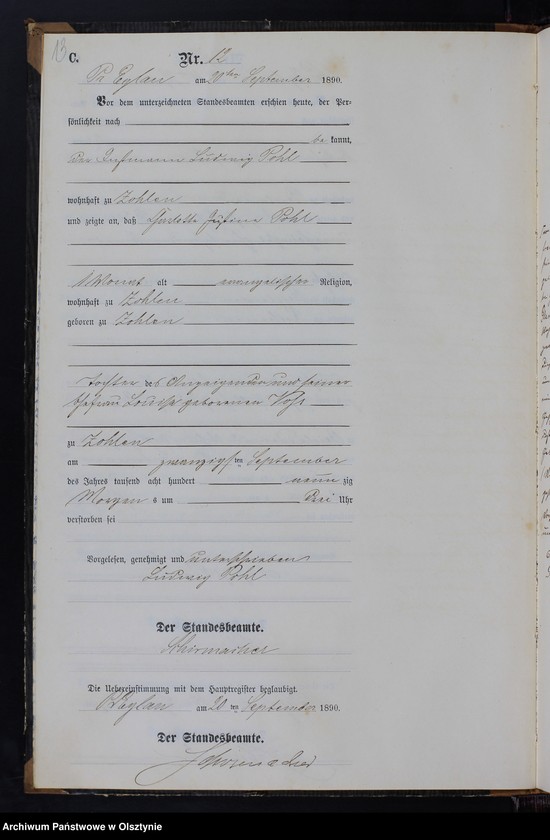 13
C.
Nr. 12
Pr Eylau am 20ten September 1890.
Vor dem unterzeichneten Standesbeamten erschien heute, der Per-
sönlichkeit nach
be kannt,
der Instmann Ludwig Pohl
wohnhaft zu Zohlen
und zeigte an, daß Charlotte Justine Pohl
1 Monat alt evangelischer Religion,
wohnhaft zu Zohlen
geboren zu Zohlen
Tochter des Anzeigenden und seiner
Ehefrau Louise geborenen
zu Zohlen
am zwanzigsten September
des Jahres tausend acht hundert neun zig
Morgen s um Drei Uhr
verstorben sei
Vorgelesen, genehmigt und unterschrieben
Ludwig Pohl
Der Standesbeamte.
Schirmacher
Die Uebereinstimmung mit dem Hauptregister beglaubigt.
Pr Eylau am 20 ten September 1890.
Der Standesbeamte.
Schirmacher
Archiwum Państwowe w Olsztynie